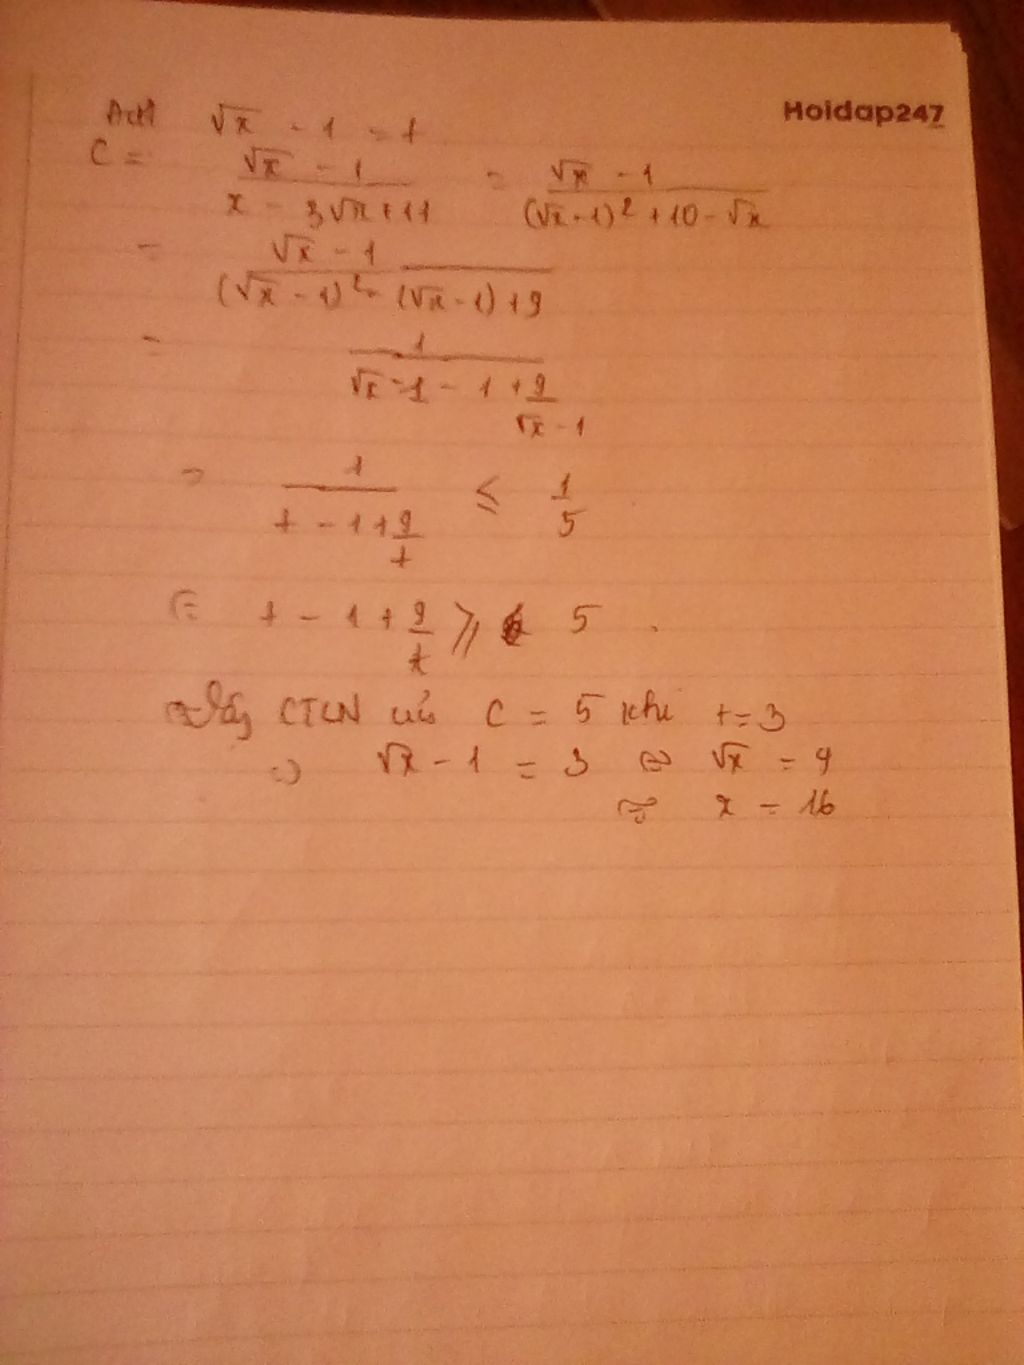 Hoidap247
Đặt √x - 1 = t
C = (√x - 1)/(x - 3√x + 11) = (√x - 1)/((√x - 1)² + 10 - √x)
= (√x - 1)/((√x - 1)² - (√x - 1) + 9)
= 1/(√x - 1 - 1 + 9/(√x - 1))
= 1/(t - 1 + 9/t) ≤ 1/5
t - 1 + 9/t ⩾ 5
Vậy GTLN của C = 5 khi t = 3
=> √x - 1 = 3 ⇔ √x = 4
⇔ x = 16